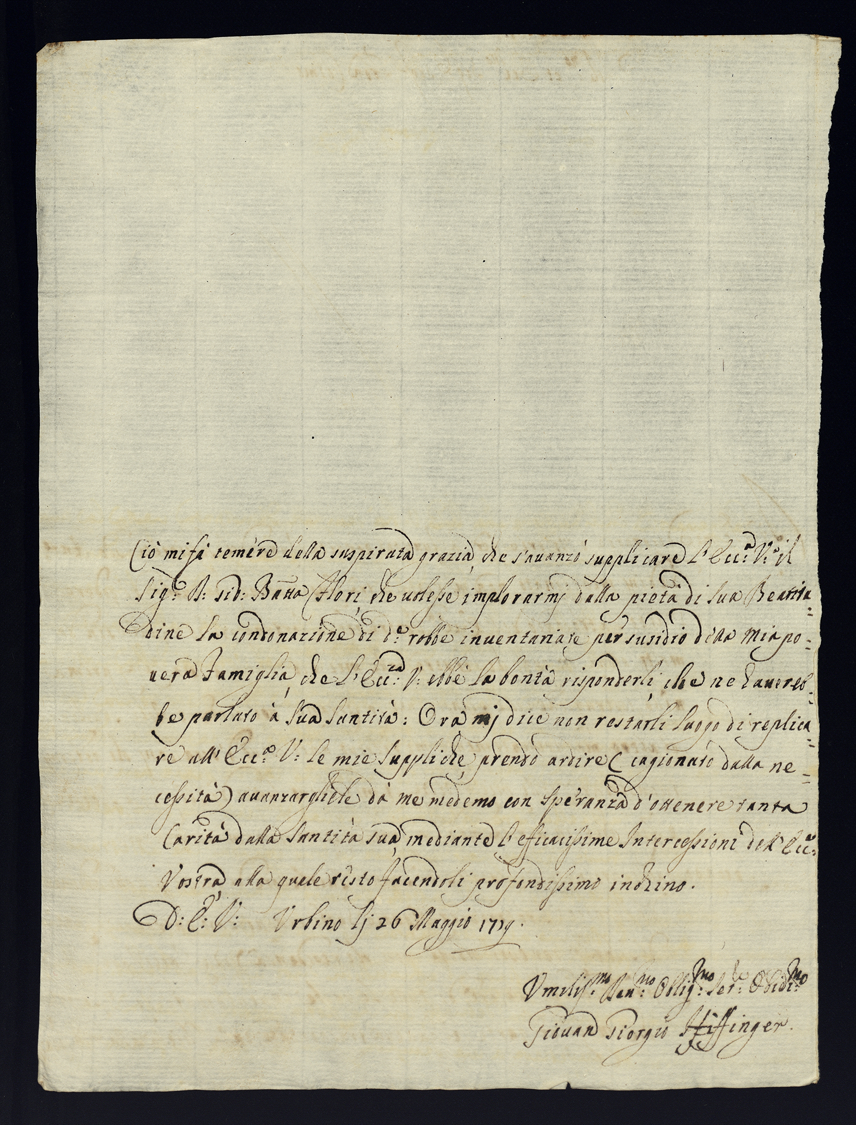 Ciò mi fà temere della suspirata grazia, che s'avanzò supplicare l'Ecc.a V.a il
Sig.r D: Gio: Batta che volesse implorarmj dalla pietà di Sua Beatitu=
dine la condonazione di d.e robbe inventariate per susidio della mia po=
vera famiglia, che l'Ecc.za V: ebbe la bontà risponderli, che ne havereb=
be parlato à Sua Santità: Ora mj dice non restarli luogo di replica=
re all'Ecc.a V: le mie suppliche, prendo ardire (cagionato dalla ne=
cessità) avanzargliele dà me medemo con speranza d'ottenere tanta
Carità dalla Santità Sua mediante l'efficacissime Intercessioni dell'Ecc.a
Vostra, alla quale resto facendoli profondissimo inchino.
D: E: V: Urbino lj 26 Maggio
Umiliss.mo Dev.mo Oblig.mo Ser.e Obidi.mo
Giovan Giorgio